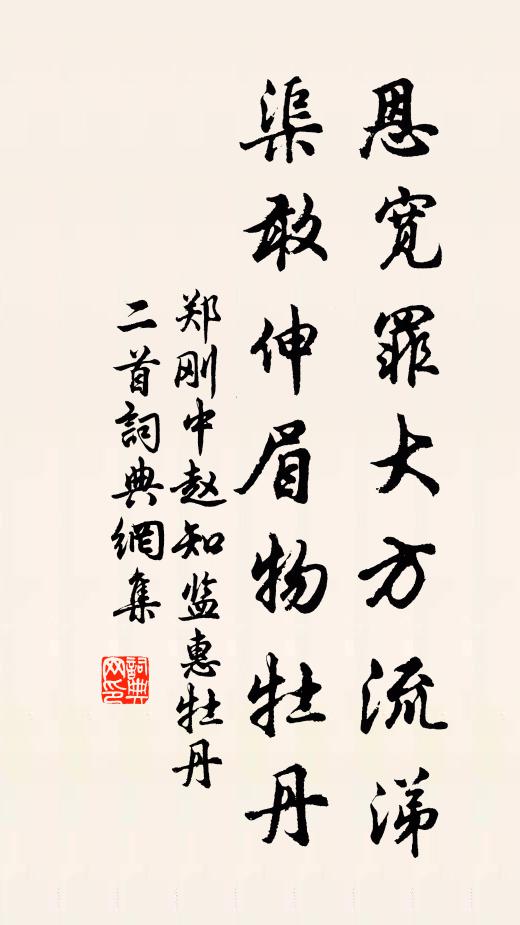 恩寬罪大方流涕
渠敢伸眉物牡丹
郑刚中赵知监惠牡丹
二首詞典網集
詞典网印